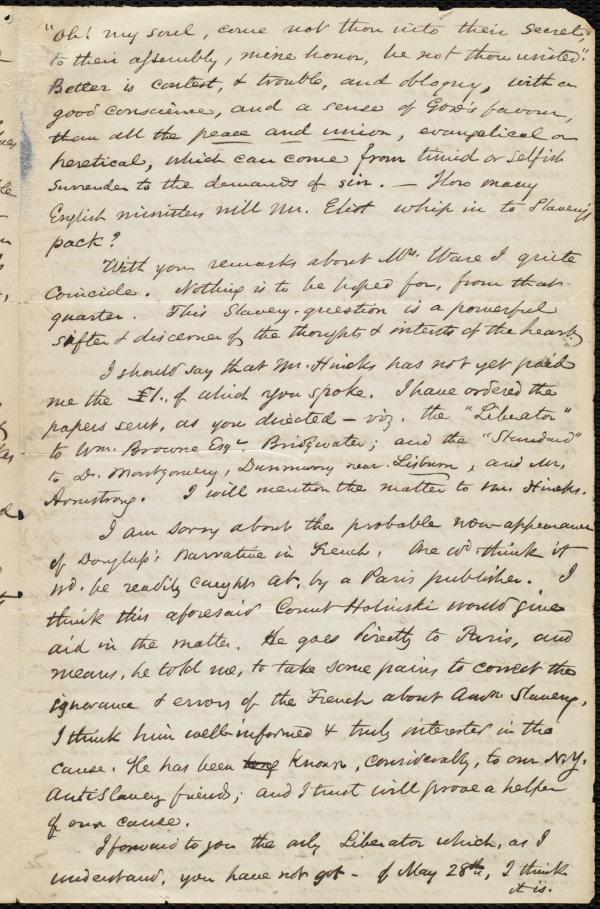 "Oh! my soul, come not thou into their secret,
to their assembly, mine honor, be not thou united."
Better is contest, & trouble, and obloquy, with a
good conscience, and a sense of God's favour,
than all the peace and union, evangelical or
heretical, which can come from timid or selfish
surrender to the demands of sin. — How many
English ministers will Mr. Eliot whip in to Slavery's
pack?
With your remarks about Mrs. Ware I quite
coincide. Nothing is to be hoped for, from that
quarter. This Slavery-question is a powerful
sifter & discerner of the thoughts & intents of the heart.
I should say that Mr. Hincks has not yet paid
me the £1., of which you spoke. I have ordered the
papers sent, as you directed – viz. the "Liberator"
to Wm. Browne Esqr. Bridgwater; and the "Standard"
to Dr. Montgomery, Dunmurry near Lisburn, and Mr.
Armstrong. I will mention the matter to Mr. Hincks.
I am sorry about the probable non-appearance
of Douglass's Narrative in French. One wd. think it
wd. be readily caught at, by a Paris publisher. I
think this aforesaid Count Holinski would give
aid in the matter. He goes directly to Paris, and
means, he told me, to take some pains to correct the
ignorance & errors of the French about Amn. Slavery.
I think him well-informed & truly interested in the
cause. He has been long known, considerably, to our N.Y.
AntiSlavery friends; and I trust will prove a helper
of our cause.
I forward to you the only Liberator which, as I
understand, you have not got – of May 28th, I think
it is.